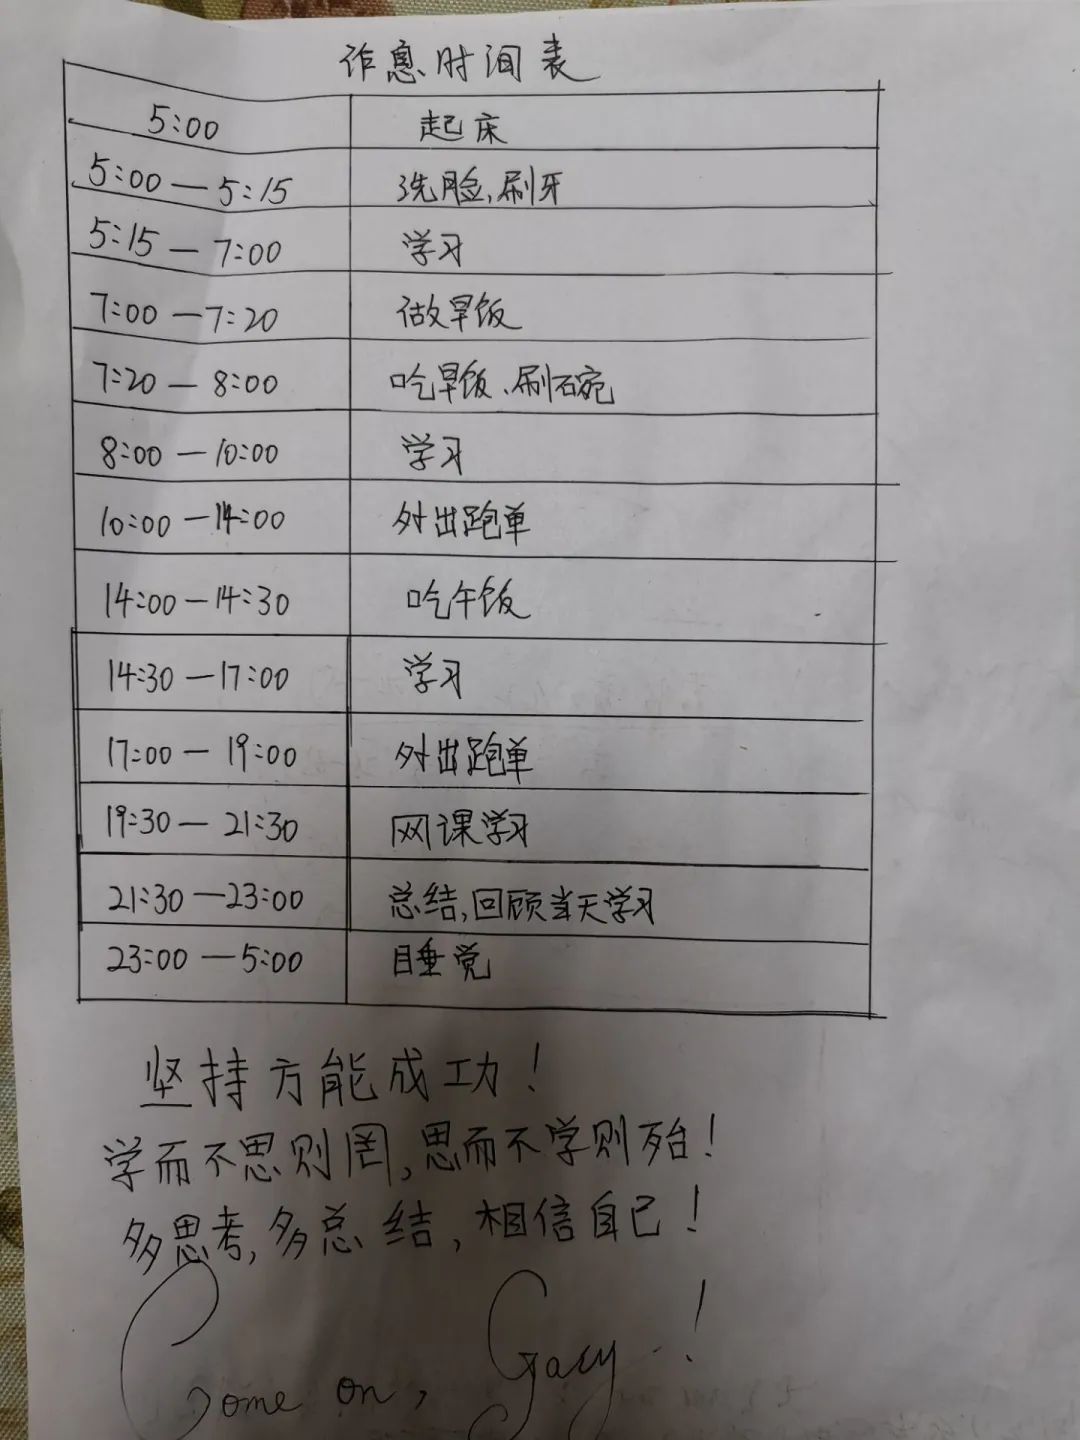 作息时间表
5:00 起床
5:00—5:15 洗脸,刷牙
5:15—7:00 学习
7:00—7:20 做早饭
7:20—8:00 吃早饭、刷碗
8:00—10:00 学习
10:00—14:00 外出跑单
14:00—14:30 吃午饭
14:30—17:00 学习
17:00—19:00 外出跑单
19:30—21:30 网课学习
21:30—23:00 总结,回顾当天学习
23:00—5:00 睡觉
坚持方能成功!
学而不思则罔,思而不学则殆!
多思考,多总结,相信自己!
Come on, Gary!